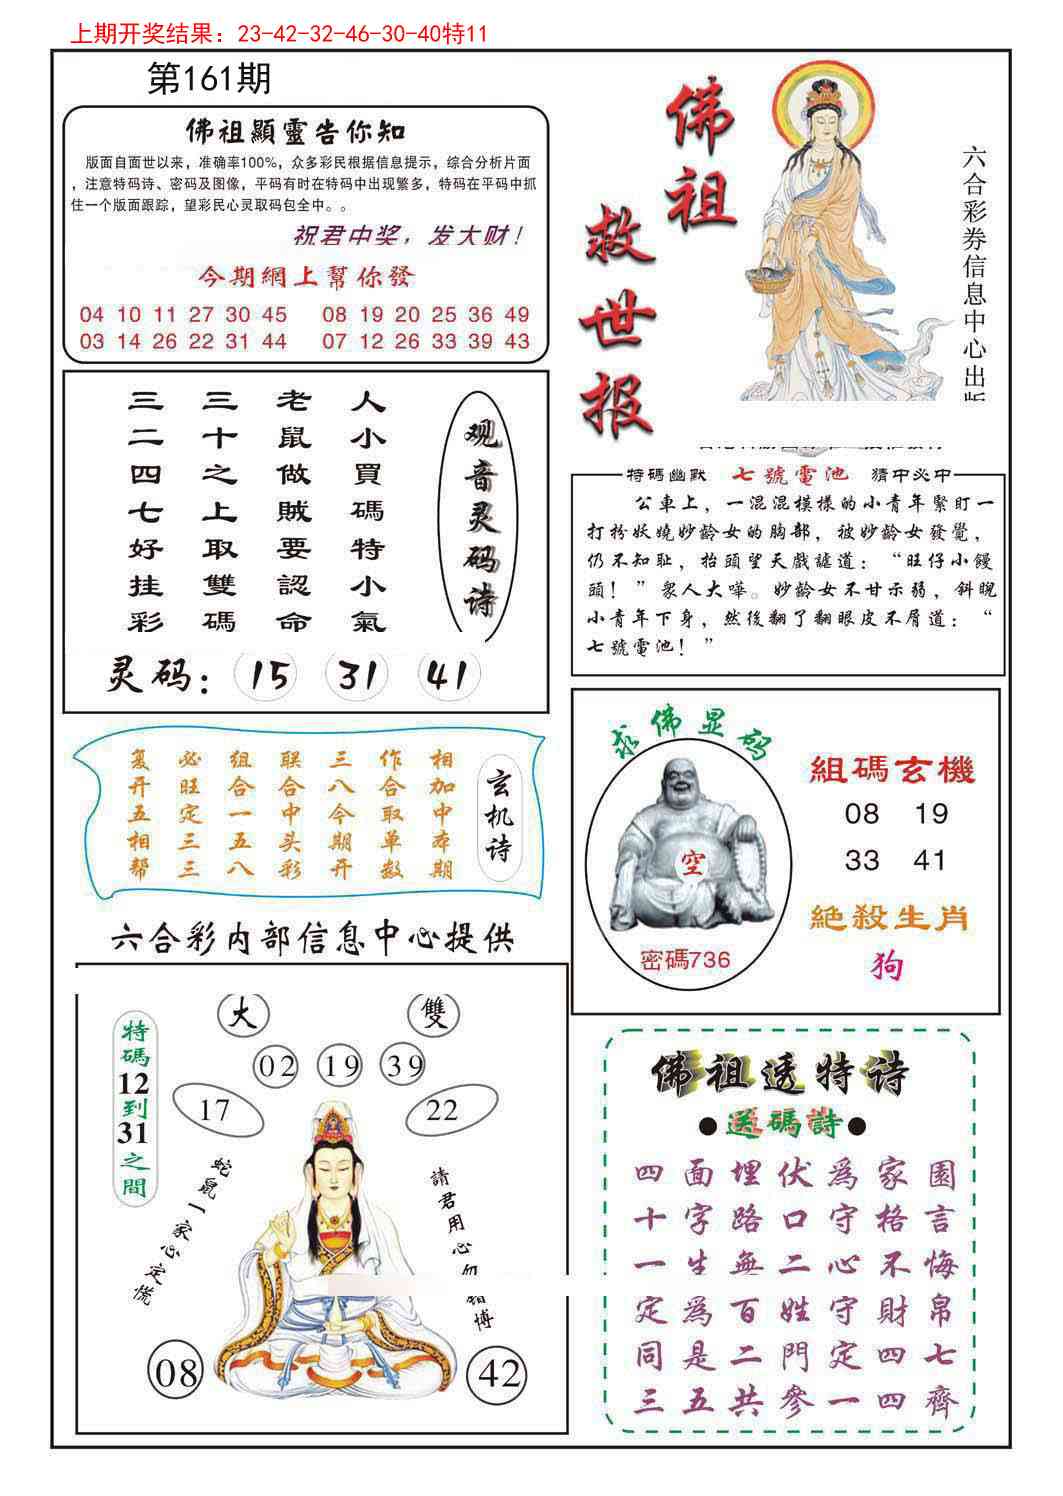 上期开奖结果：23-42-32-46-30-40特11
第161期
佛祖顯靈告你知
版面自面世以来，准确率100%，众多彩民根据信息提示，综合分析片面
，注意特码诗、密码及图像，平码有时在特码中出现繁多，特码在平码中抓
住一个版面跟踪，望彩民心灵取码包全中。。
祝君中奖，发大财！
今期網上幫你發
04 10 11 27 30 45 08 19 20 25 36 49
03 14 26 22 31 44 07 12 26 33 39 43
佛祖
救世报
六合彩券信息中心出版
人小買碼特小氣
老鼠做賊要認命
三十之上取雙碼
三二四七好挂彩
观音灵码诗
灵码：15 31 41
特碼幽默 七號電池 猜中必中
公車上，一混混模樣的小青年緊盯一
打扮妖嬈妙齡女的胸部，被妙齡女發覺，
仍不知耻，抬頭望天戲謔道：“旺仔小饅
頭！”衆人大嘩。妙齡女不甘示弱，斜睨
小青年下身，然後翻了翻眼皮不屑道：“
七號電池！”
玄机诗
相加中本期
作合取单数
三八今期开
联合中头彩
组合一五八
必旺定三三
复开五相帮
求佛显码
空
密碼736
組碼玄機
08 19
33 41
絕殺生肖
狗
六合彩内部信息中心提供
特碼12到31之間
大 雙
02 19 39
17 22
蛇鼠一家心定慌
請君用心勿賭博
08 42
佛祖透特诗
●送碼詩●
四面埋伏爲家園
十字路口守格言
一生無二心不悔
定爲百姓守財帛
同是二門定四七
三五共參一四齊